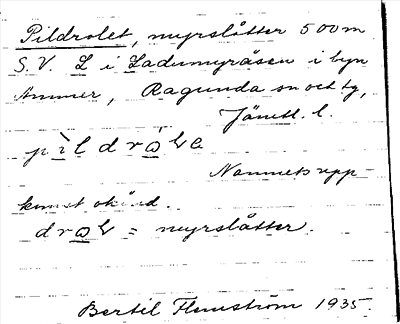 Pildrolet, myrslåtter 500 m
S.V. L i Ladumyråsen i byn
Ammer, Ragunda sn och tg,
Jämtl. l.
pìldrålle
Namnets upp-
komst okänd.
= myrslåtter.
Bertil Flemström 1935.